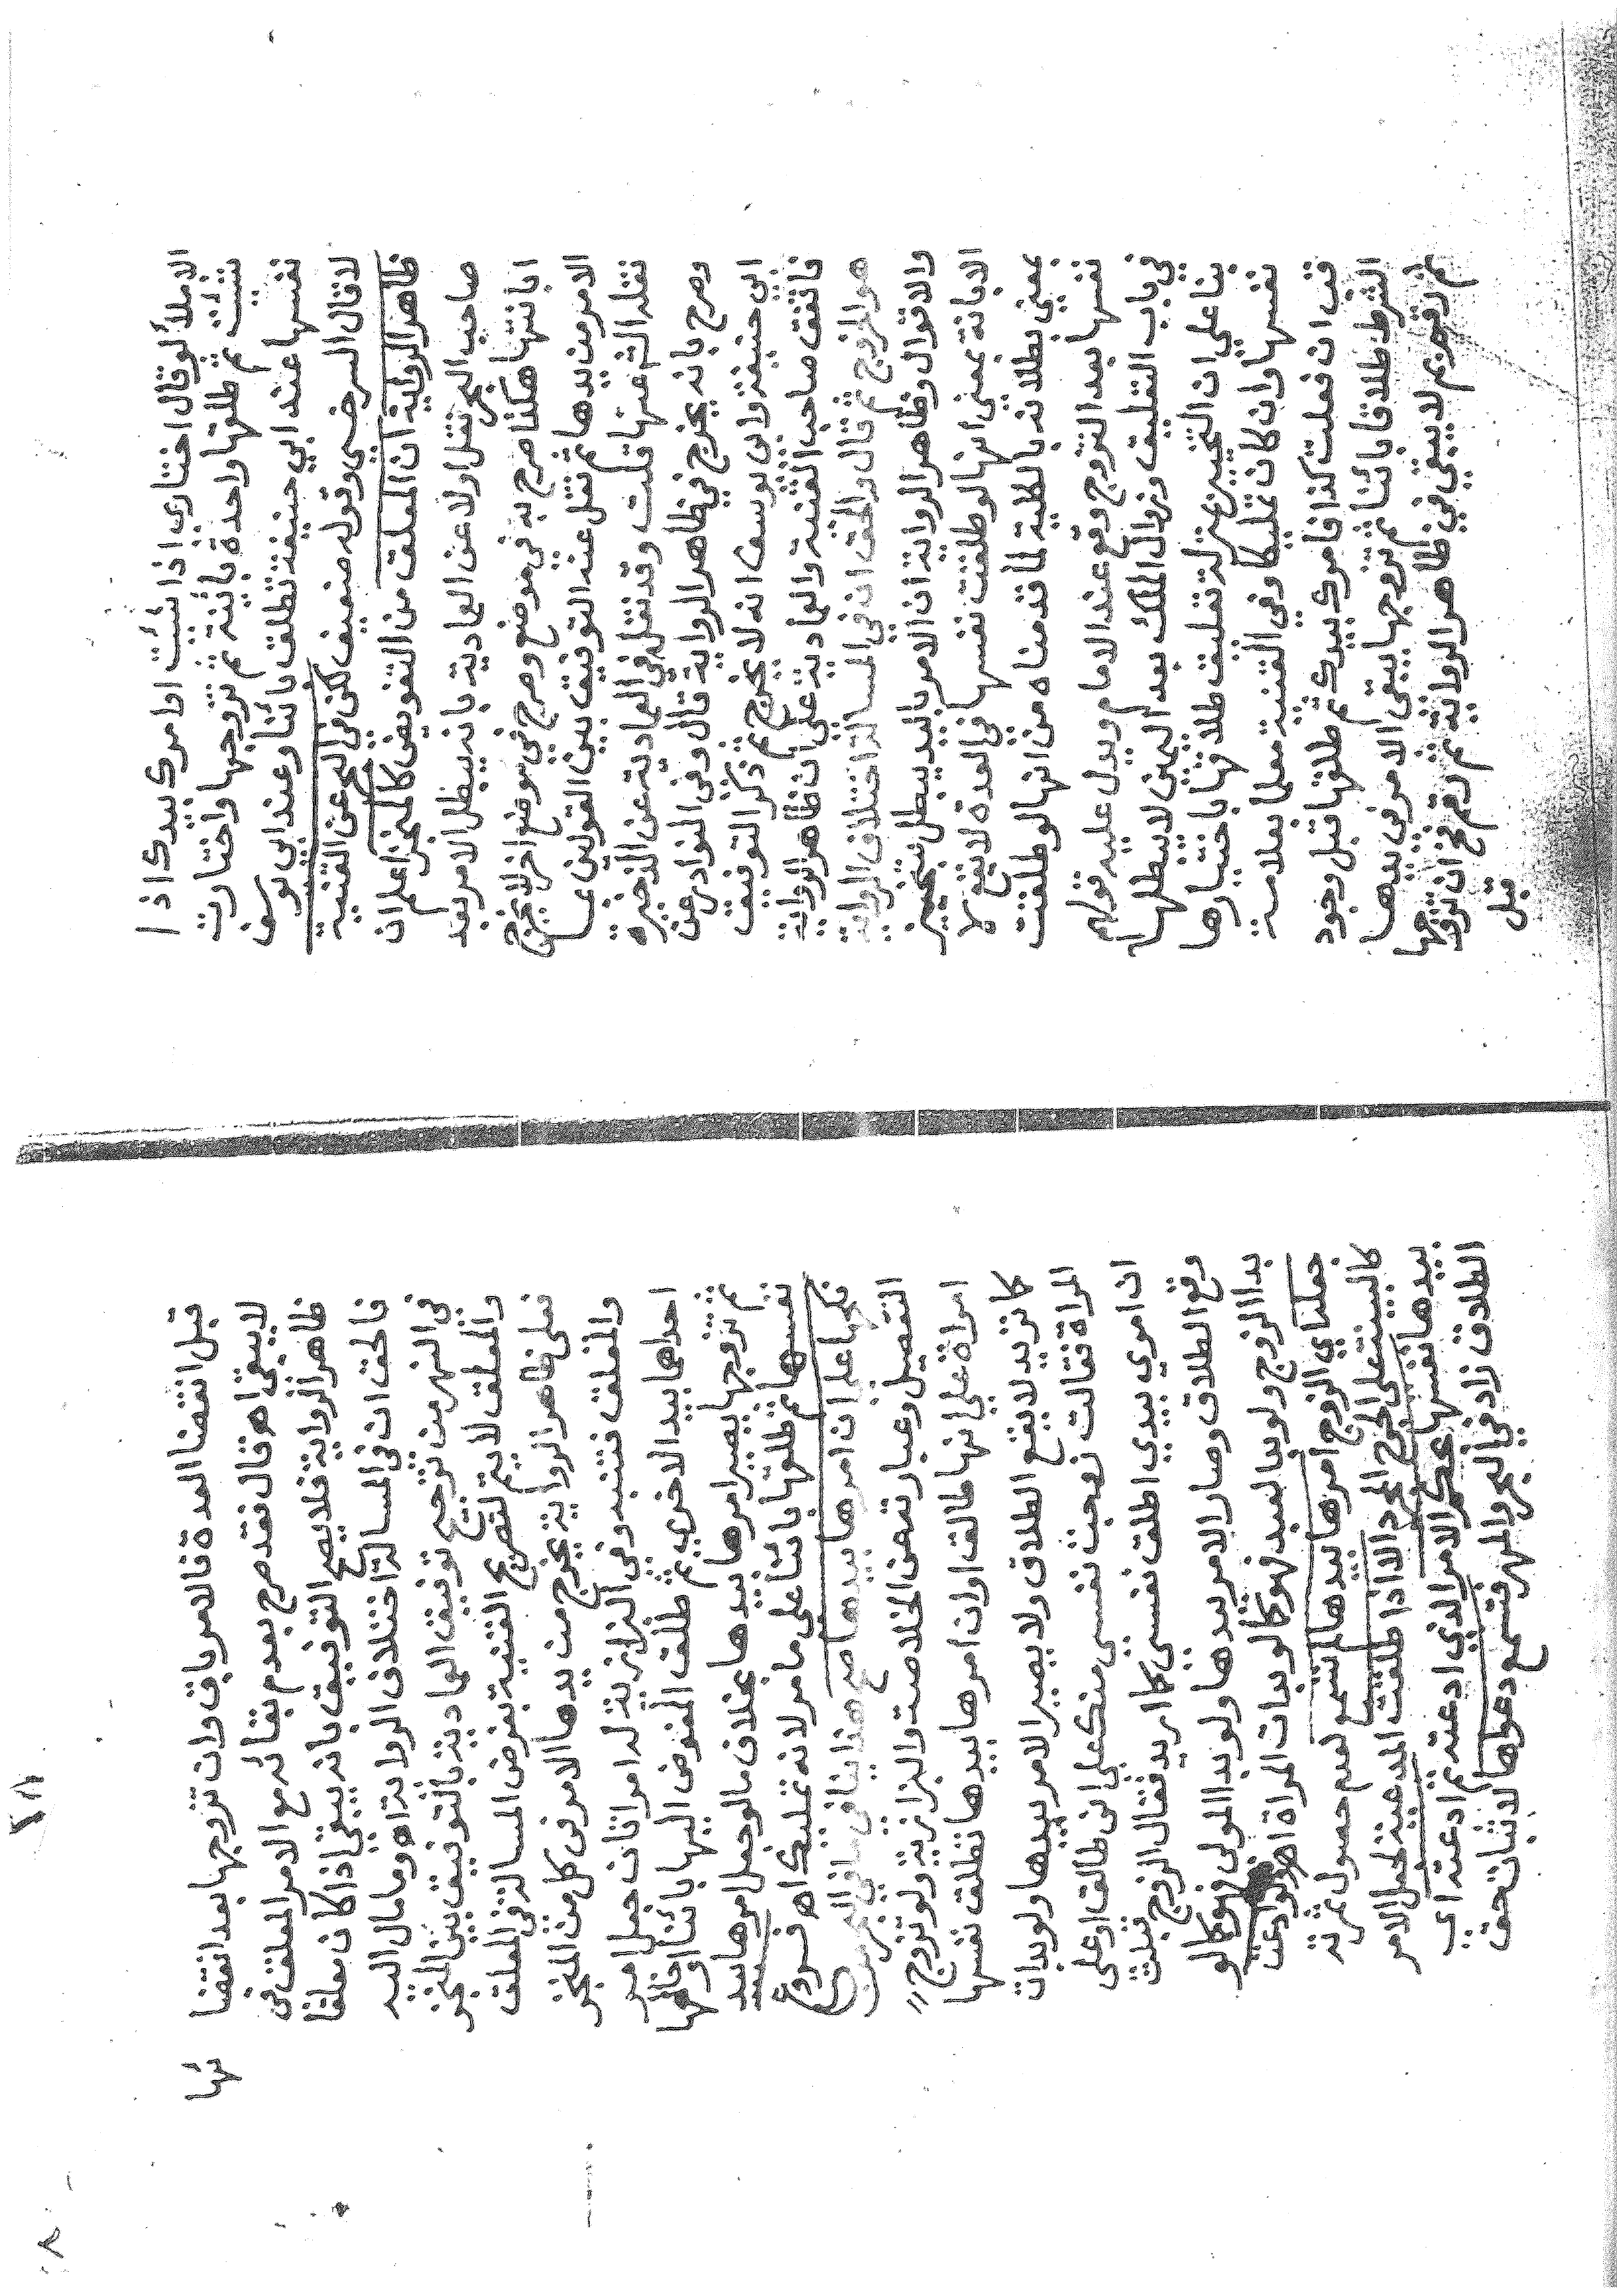 الاملا لو قال اختاري اذا شئت او امرك بيدك اذا
شئت ثم طلقها واحدة بائنة ثم تزوجها واختارت
نفسها عند ابي حنيفة تطلق بائنا وعند ابي يوسف
لا قال السرخسي وقوله ضعيف لكن في البحر عن القنية
ظاهر الرواية ان المعلق من التفويض كالمنجز اعلم ان
صاحب البحر نقل اولا عن العمادية بانه يبطل الامر بعد
ابانتها هكذا صرح به في موضع وصرح في موضع اخر لا يخرج
الامر من يدها ثم نقل عنه التوفيق بين القولين عا
نقله الشـ عنها قلت وقد نقل في العمادية عن الذخيرة
وصرح بانه يخرج في ظاهر الرواية قال وفي النوادر عن
ابي حنيفة وابي يوسف انه لا يخرج ثم ذكر التوفيق
فاتفق صاحب القنية والعمادية على ان ظاهر الرواية
هو الخروج ثم قال والحق ان في المسالة اختلاف الرواية
والاقوال وظاهر الرواية ان الامر باليد يبطل بتنجيز
الابانة بمعنى انها لو طلقت نفسها في العدة لا يقع لا
بمعنى بطلانه بالكلية لما قدمناه من انها لو طلقت
نفسها بعد التزوج وقع عند الامام ويدل عليه قولهم
في باب التعليق وزوال الملك بعد اليمين لا يبطلها
بنا على ان التخيير بمنزلة تعليق طلاقها باختيارها
نفسها وان كان تمليكا وفي القنية معلما بعلامة
قب ان فعلت كذا فامرك بيدك ثم طلقها قبل وجود
الشرط طلاقا بائنا ثم تزوجها يبقى الامر في يدها
ثم رقم بم لا يبقى في ظاهر الرواية ثم رقم فخ ان تزوجها
قبل
قبل انقضا العدة فالامر باق وان تزوجها بعد انقضا
ئها
لا يبقى اهـ قال فقد صرح بعدم بقائه مع الامر المعلق في
ظاهر الرواية فلا يصح التوفيق بانه يبقى اذا كان معلقا
فالحق ان في المسالة اختلاف الرواية اهـ وما مال اليه
في النهر من ترجيح توفيق العمادية بالتوفيق بين المنجز
والمعلق لا يتم لتصريح القنية بفرض المسالة في المعلق
فعلى ظاهر الرواية يخرج من يدها الامر في كل من المنجز
والمعلق فتنبه وفي البزازية له امراتان جعل امر
احداهما بيد الاخرى ثم طلق المفوض اليها بائنا او خالعها
ثم تزوجها يصير امرها بيدها بخلاف ما لو جعل امرها بيد
نفسها ثم طلقها بائنا على ما مر لانه تمليك اهـ فروع
نكحها على ان امرها بيدها صح هذا ينافي ما في البحر من
التفصيل وعبارته عن الخلاصة والبزازية ولو تزوج
امراة على انها طالق او ان امرها بيدها تطلق نفسها
كما تريد لا يقع الطلاق ولا يصير الامر بيدها ولو بدات
المراة فقالت زوجت نفسي منك على اني طالق او على
ان امري بيدي اطلق نفسي كما اريد فقال الزوج قبلت
وقع الطلاق وصار الامر بيدها ولو بدا المولى فهو كالو
بدا الزوج ولو بدا العبد فهو كالو بدات المراة اهـ ولو ادعت
جعلنا اي الزوج امرها بيدها لم تسمع لعدم حصول ثمرته
كالبينة على المجرد الا اذا طلقت المدعية بحكم الامر
بيدها نفسها بحكم الامر الذي ادعته ثم ادعته اي
الطلاق زاد في البحر والمهر فتسمع دعواها لاثبات حق